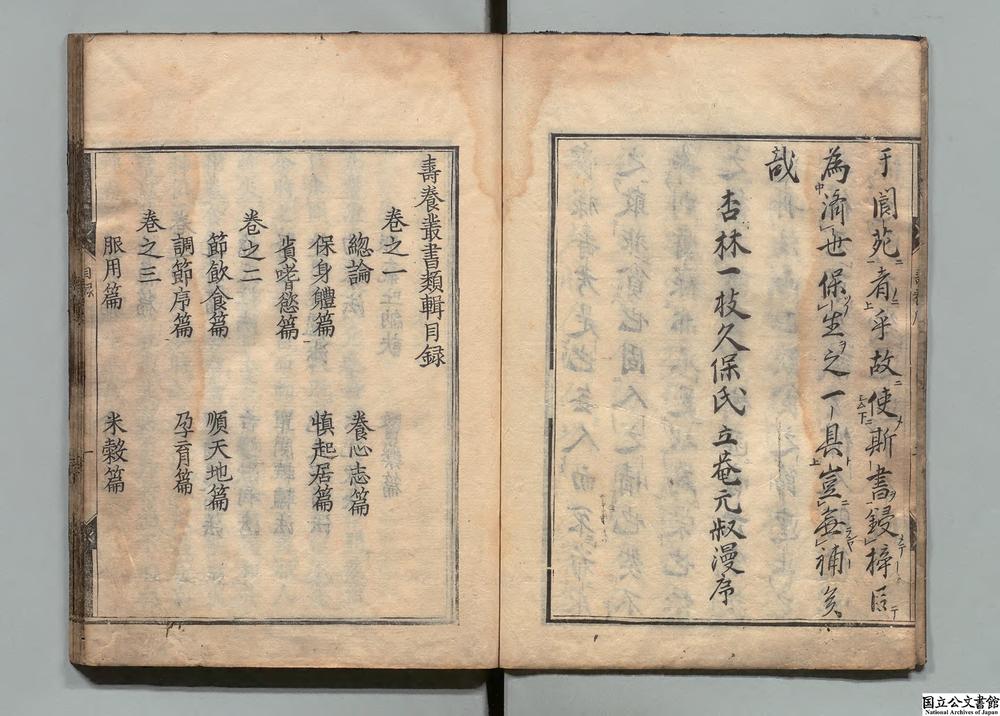 于閬苑者乎故使斯書鋟梓以
為濟世保生之一具豈無補矣
哉
杏林一枝久保氏立菴元叔漫序
壽養叢書類輯目録
卷之一
總論 養心志篇
保身體篇 慎起居篇
貴嗜慾篇
卷之二
節飲食篇 順天地篇
調節序篇 孕育篇
卷之三
服用篇 米穀篇
目録
一
国立公文書館
National Archives of Japan